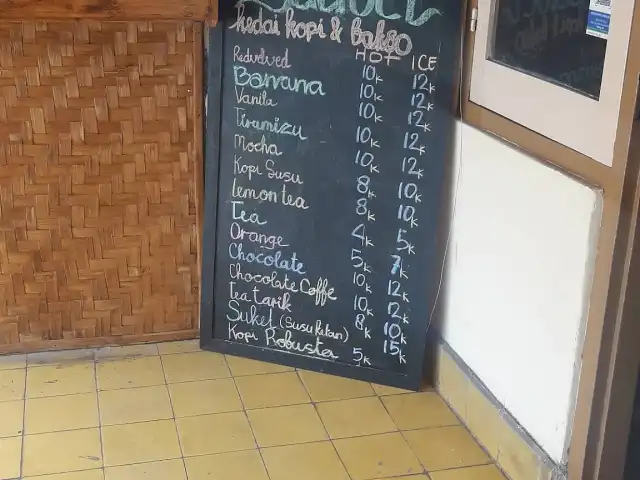 kedai kopi & bakso
HOT ICE
Redvelved 10k 12k
Banana 10k 12k
Vanila 10k 12k
Tiramizu 10k 12k
Mocha 10k 12k
Kopi Susu 8k 10k
lemon tea 8k 10k
Tea 4k 5k
Orange 5k 7k
Chocolate 10k 12k
Chocolate Coffe 10k 12k
tea tarik 8k 10k
Suket (Susu Ketan) 15k
Kopi Robusta 5k